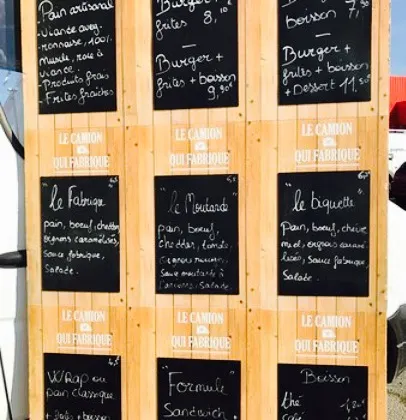 Pain artisanal
- Viance avey-
ronnaise, 100%
muscle, race à
viance.
- Produits frais
- Frites fraîches
Burger +
frites 8,10
—
Burger +
frites + boisson
9,90€
Burger +
boisson 7,50
—
Burger +
frites + boisson
+ Dessert 11,50€
LE CAMION
QUI FABRIQUE
LE CAMION
QUI FABRIQUE
LE CAMION
QUI FABRIQUE
"le Fabrique"
pain, bœuf, cheddar
oignons caramélisés,
sauce fabrique,
Salade.
"le Moutarde"
pain, bœuf,
cheddar, tomate,
oignons
sauce moutarde à
l'ancienne, salade.
"le biquette"
pain, bœuf, chèvre
miel, oignons caramé-
lisés, sauce fabrique
Salade.
LE CAMION
QUI FABRIQUE
LE CAMION
QUI FABRIQUE
LE CAMION
QUI FABRIQUE
WRap ou
pain classique
+ boisson
"Formule"
Sandwich
Boisson
thé
café 1,20€